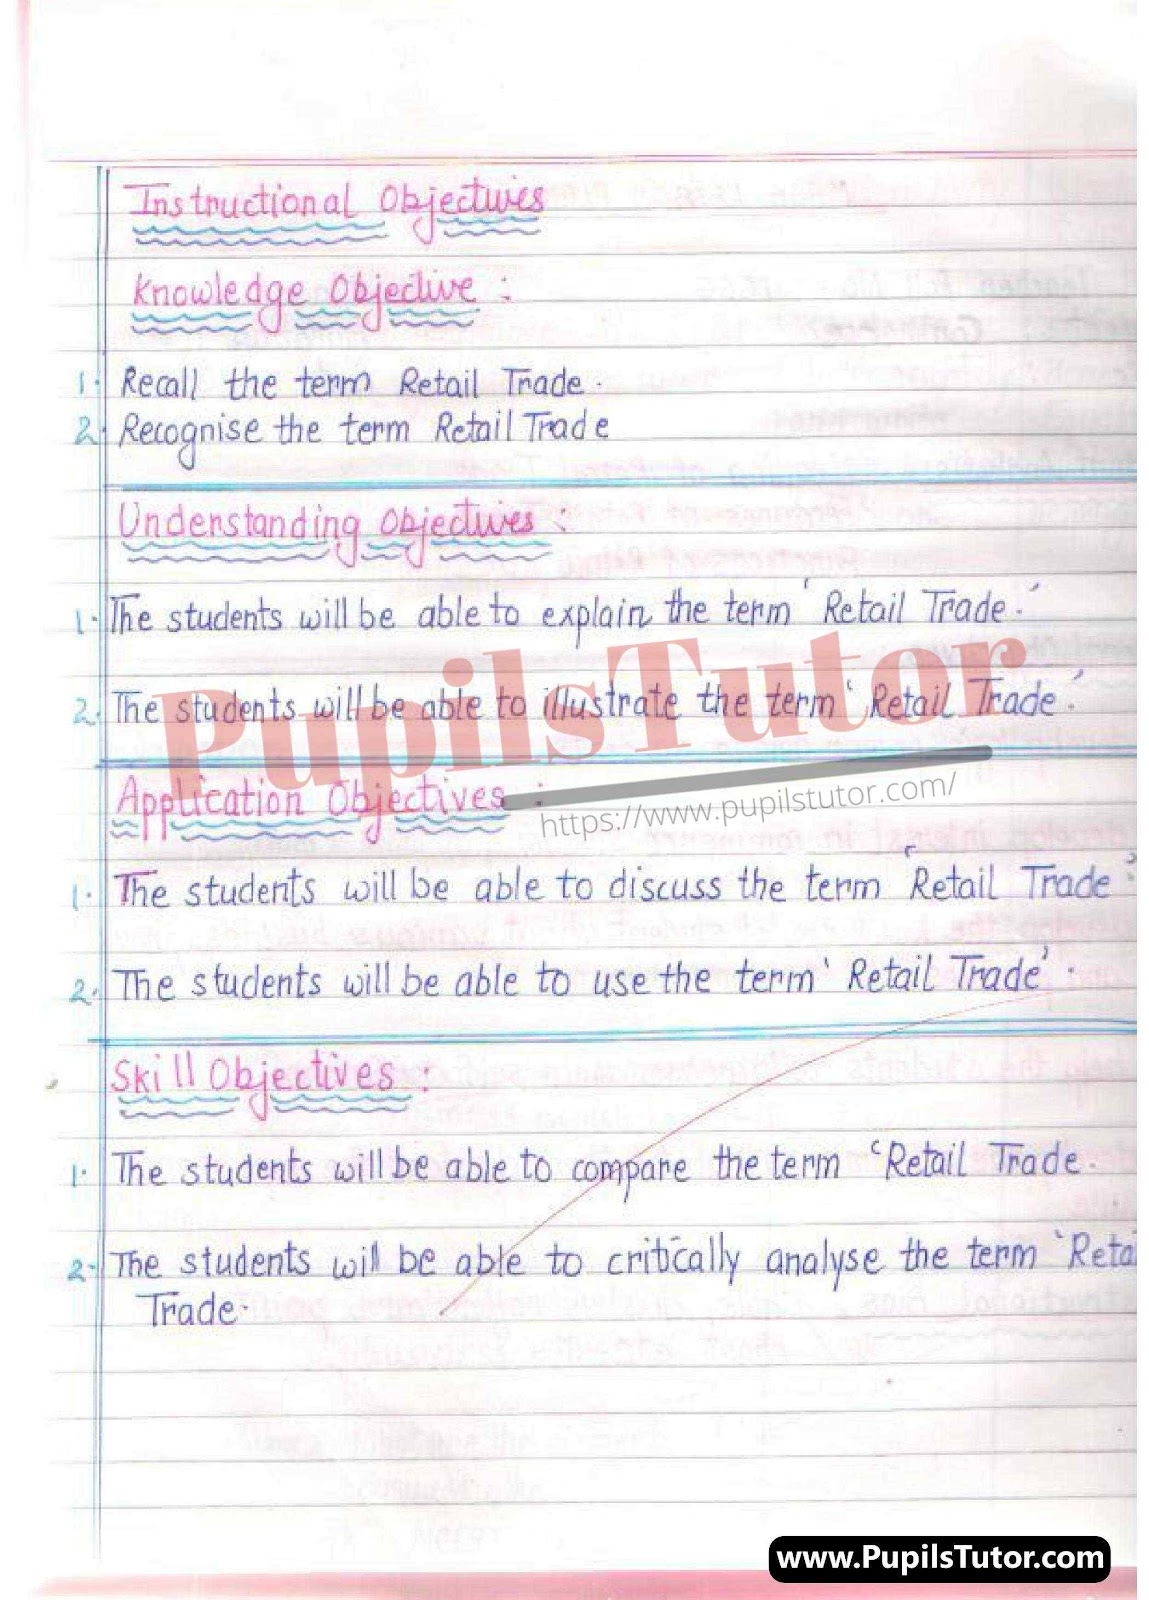 Instructional Objectives
Knowledge Objective :
1. Recall the term Retail Trade.
2. Recognise the term Retail Trade
Understanding Objectives :
1. The students will be able to explain the term 'Retail Trade.'
2. The students will be able to illustrate the term 'Retail Trade.'
PupilsTutor
Application Objectives :
https://www.pupilstutor.com/
1. The students will be able to discuss the term 'Retail Trade'.
2. The students will be able to use the term 'Retail Trade'.
Skill Objectives :
1. The students will be able to compare the term 'Retail Trade.
2. The students will be able to critically analyse the term 'Retai
Trade.
www.PupilsTutor.com